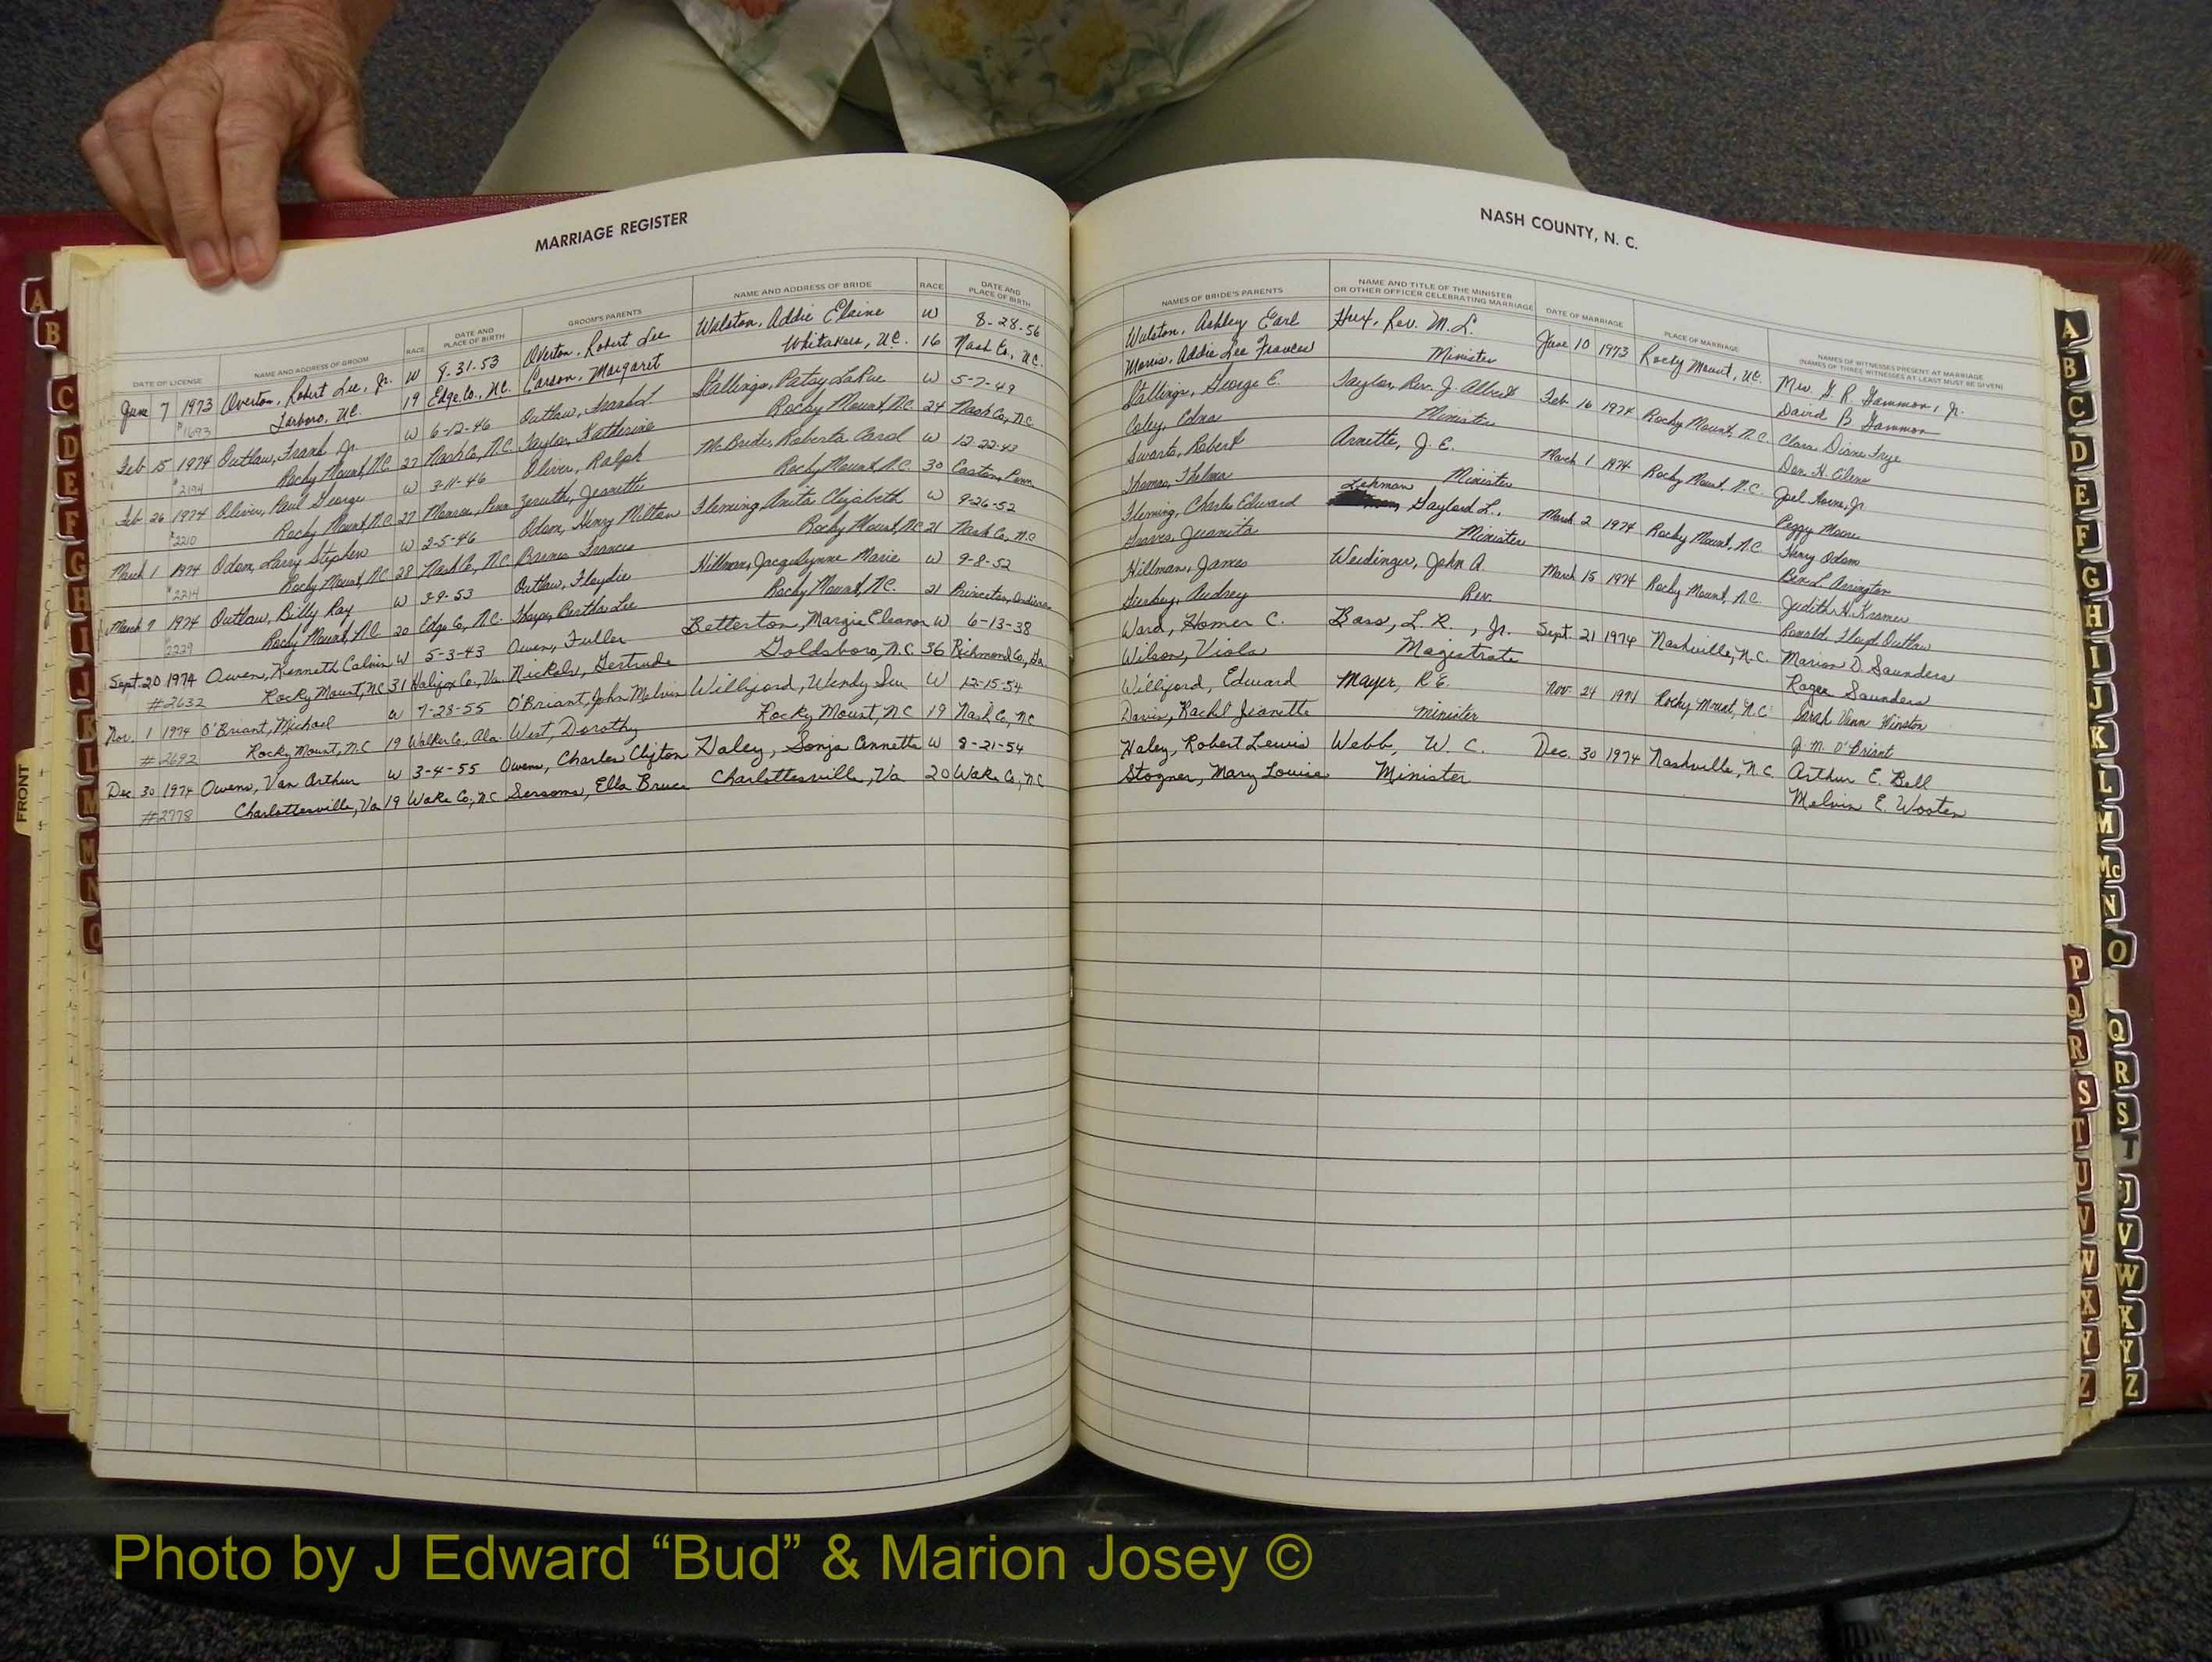 MARRIAGE REGISTER
DATE OF LICENSE NAME AND ADDRESS OF GROOM RACE DATE AND PLACE OF BIRTH GROOM'S PARENTS NAME AND ADDRESS OF BRIDE RACE DATE AND PLACE OF BIRTH
June 7 1973 Overton, Robert Lee, Jr. W 8-31-53 Overton, Robert Lee Walston, Addie Elaine W 8-28-56
#1693 Tarboro, NC. 19 Edge.Co., NC. Carson, Margaret Whitakers, NC. 16 Nash Co., NC.
Feb 15 1974 Outlaw, Frank Jr. W 6-12-46 Outlaw, Frank L Stallings, Patsy LaRue W 5-7-49
#2194 Rocky Mount, NC. 27 Nash Co, N.C. Taylor, Katherine Rocky Mount, NC. 24 Nash Co, N.C
Feb 26 1974 Oliver, Paul George W 3-11-46 Oliver, Ralph McBride, Roberta Carol W 12-22-43
#2210 Rocky Mount, N.C 27 Monroe, Penn Jeanette Rocky Mount, N.C. 30 Easton, Penn
March 1 1974 Odom, Larry Stephen W 2-5-46 Odom, Henry Milton Fleming, Anita Elizabeth W 9-26-52
#2214 Rocky Mount, NC 28 Nash Co, N.C Barnes Frances Rocky Mount, NC 21 Nash Co, N.C
March 7 1974 Outlaw, Billy Ray W 3-9-53 Outlaw, Floydie Hillman, Jacquelynne Marie W 9-8-52
#2229 Rocky Mount, N.C 20 Edge Co, N.C. Bertha Lee Rocky Mount, N.C. 21 Princeton, Indiana
Sept. 20 1974 Owen, Kenneth Calvin W 5-3-43 Owen, Fuller Betterton, Margie Eleanor W 6-13-38
#2632 Rocky Mount, NC 31 Halifax Co, Va Nickols, Gertrude Goldsboro, N.C 36 Richmond Co, Ga.
Nov. 1 1974 O'Briant, Michael W 7-28-55 O'Briant, John Melvin Williford, Wendy Sue W 12-15-54
#2692 Rocky Mount, N.C 19 Walker Co, Ala. West, Dorothy Rocky Mount, NC 19 Nash Co, NC
Dec 30 1974 Owens, Van Arthur W 3-4-55 Owens, Charles Clifton Haley, Sonja Annette W 8-21-54
#2778 Charlottesville, Va 19 Wake Co, NC Sessoms, Ella Bruce Charlottesville, Va 20 Wake Co, N.C
NASH COUNTY, N. C.
NAMES OF BRIDE'S PARENTS NAME AND TITLE OF THE MINISTER OR OTHER OFFICER CELEBRATING MARRIAGE DATE OF MARRIAGE PLACE OF MARRIAGE NAMES OF WITNESSES PRESENT AT MARRIAGE (NAMES OF THREE WITNESSES AT LEAST MUST BE GIVEN)
Walston, Ashley Earl Hux, Rev. M.L. June 10 1973 Rocky Mount, NC. Mrs. G. R. Gammon, Jr.
Morris, Addie Lee Frances Minister David B Gammon
Stallings, George E. Taylor, Rev. J. Albert Feb. 16 1974 Rocky Mount, N.C. Clara Diane Frye
Coley, Edna Minister Don H. Glenn
Swarts, Robert Arnette, J. E. March 1 1974 Rocky Mount, N.C. Joel Jr.
Thomas, Thelma Minister Peggy Moore
Fleming, Charles Edward Lehman Gaylord L. March 2 1974 Rocky Mount, N.C Henry Odom
Graves, Juanita Minister Ben L. Arrington
Hillman, James Weidinger, John A. March 15 1974 Rocky Mount, N.C. Judith H. Kramer
Audrey Rev. Ronald Floyd Outlaw
Ward, Homer C. Bass, L.R., Jr. Sept. 21 1974 Nashville, N.C. Marion D. Saunders
Wilson, Viola Magistrate Roger Saunders
Williford, Edward Mayer, R E. Nov. 24 1974 Rocky Mount, N.C. Sarah Vann Winston
Davis, Rachel Jeanette Minister J. M. O'Briant
Haley, Robert Lewis Webb, W. C. Dec. 30 1974 Nashville, N.C Arthur E. Bell
Stogner, Mary Louise Minister Melvin E. Wooten
A
B
C
D
E
F
G
H
I
J
K
L
M
Mc
N
O
FRONT
A
B
C
D
E
F
G
H
I
J
K
L
M
Mc
N
O
P
Q
R
S
T
U
V
W
X
Y
Z
Q
R
S
T
U
V
W
X
Y
Z
Photo by J Edward “Bud” & Marion Josey ©